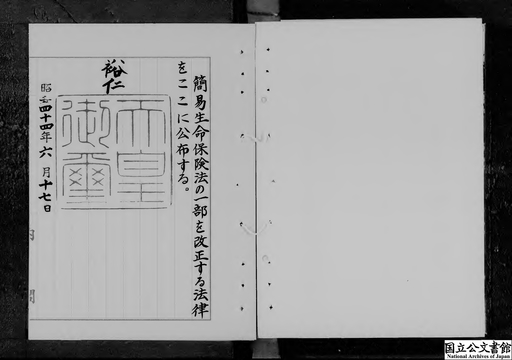 簡易生命保険法の一部を改正する法律
をここに公布する。
裕仁
天皇
御璽
昭和四十四年六月十七日
国立公文書館
National Archives of Japan